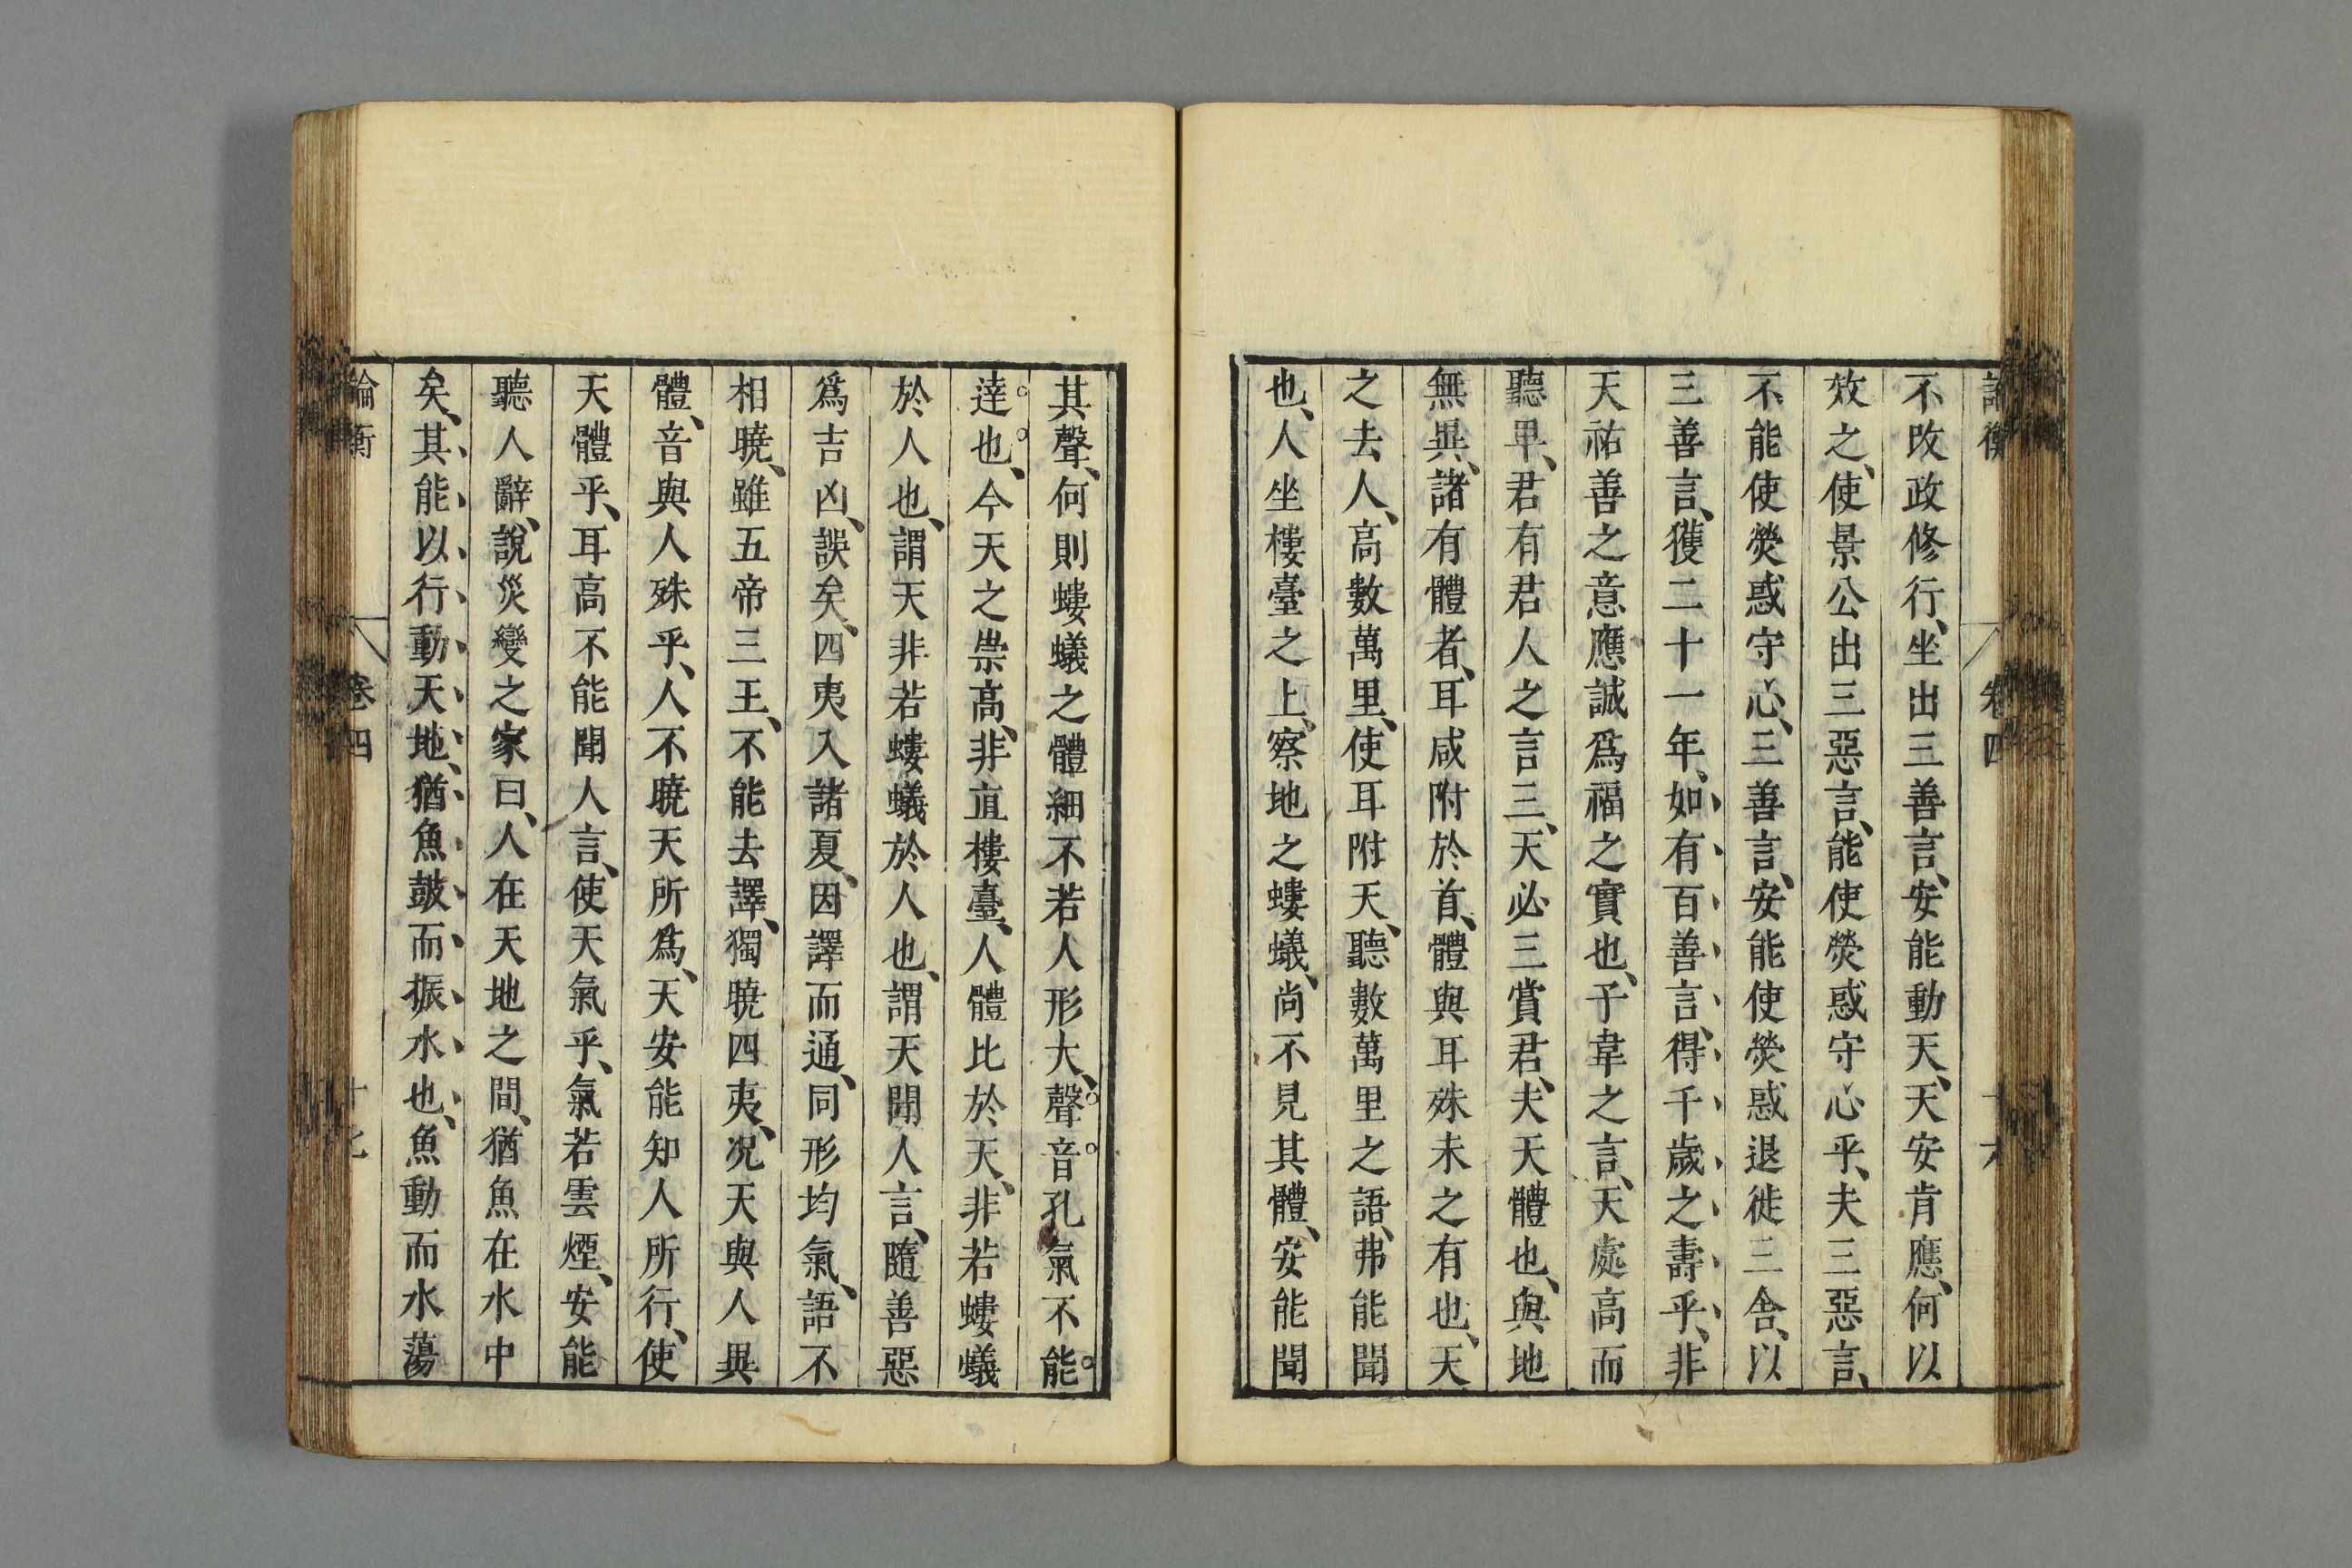 論衡 卷四 十六
不改政修行、坐出三善言、安能動天、天安肯應、何以
效之、使景公出三惡言、能使熒惑守心乎、夫三惡言、
不能使熒惑守心、三善言、安能使熒惑退徙三舍、以
三善言、獲二十一年、如有百善言、得千歲之壽乎、非
天祐善之意、應誠爲福之實也、子韋之言、天處高而
聽卑、君有君人之言三、天必三賞君、夫天體也、與地
無異、諸有體者、耳咸附於首、體與耳殊未之有也、天
之去人、高數萬里、使耳附天、聽數萬里之語、弗能聞
也、人坐樓臺之上、察地之螻蟻、尚不見其體、安能聞
其聲、何則螻蟻之體細不若人形大、聲音孔氣不能
逹也、今天之崇高、非直樓臺、人體比於天、非若螻蟻
於人也、謂天非若螻蟻於人也、謂天聞人言、隨善惡
爲吉凶、誤矣、四夷入諸夏、因譯而通、同形均氣、語不
相曉、雖五帝三王、不能去譯、獨曉四夷、况天與人異
體、音與人殊乎、人不曉天所爲、天安能知人所行、使
天體乎、耳高不能聞人言、使天氣乎、氣若雲煙、安能
聽人辭、說災變之家曰、人在天地之間、猶魚在水中
矣、其能以行動天地、猶魚鼓而振水也、魚動而水蕩
論衡 卷四 十七